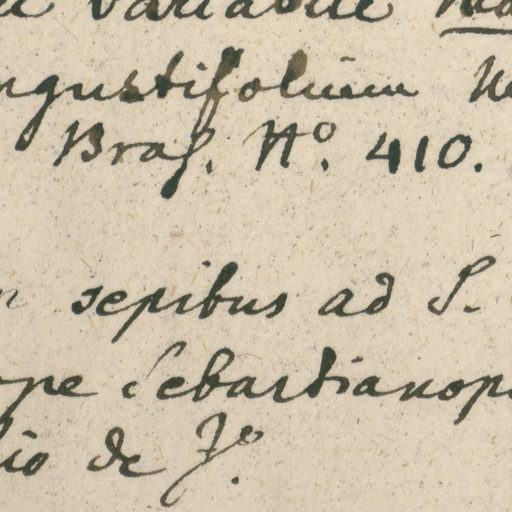 variabile
ngustifolium
Bras. No. 410.
sepibus ad S.
pe Sebastianop
io de Jo.